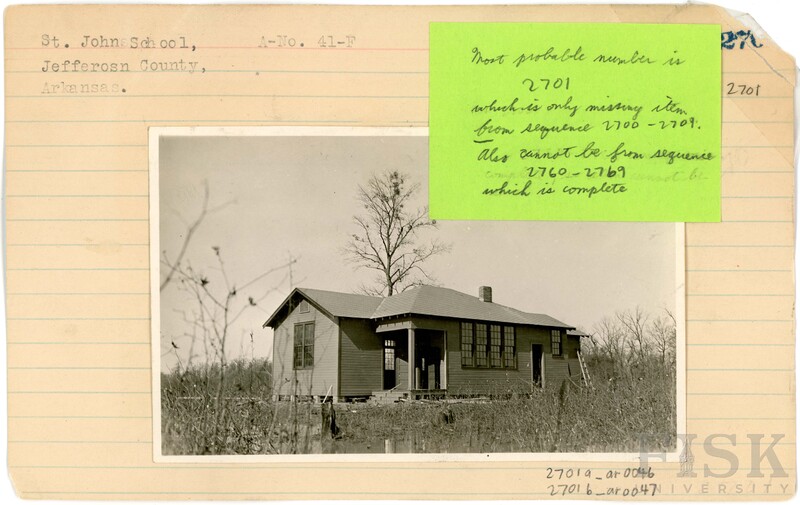 St. John School,
A-No. 41-F
Jefferosn County,
Arkansas.
27
2701
Most probable number is
2701
which is only missing item
from sequence 2700-2709.
Also cannot be from sequence
2760-2769
which is complete
2701a_ar0046
2701b_ar0047
FISK
UNIVERSITY